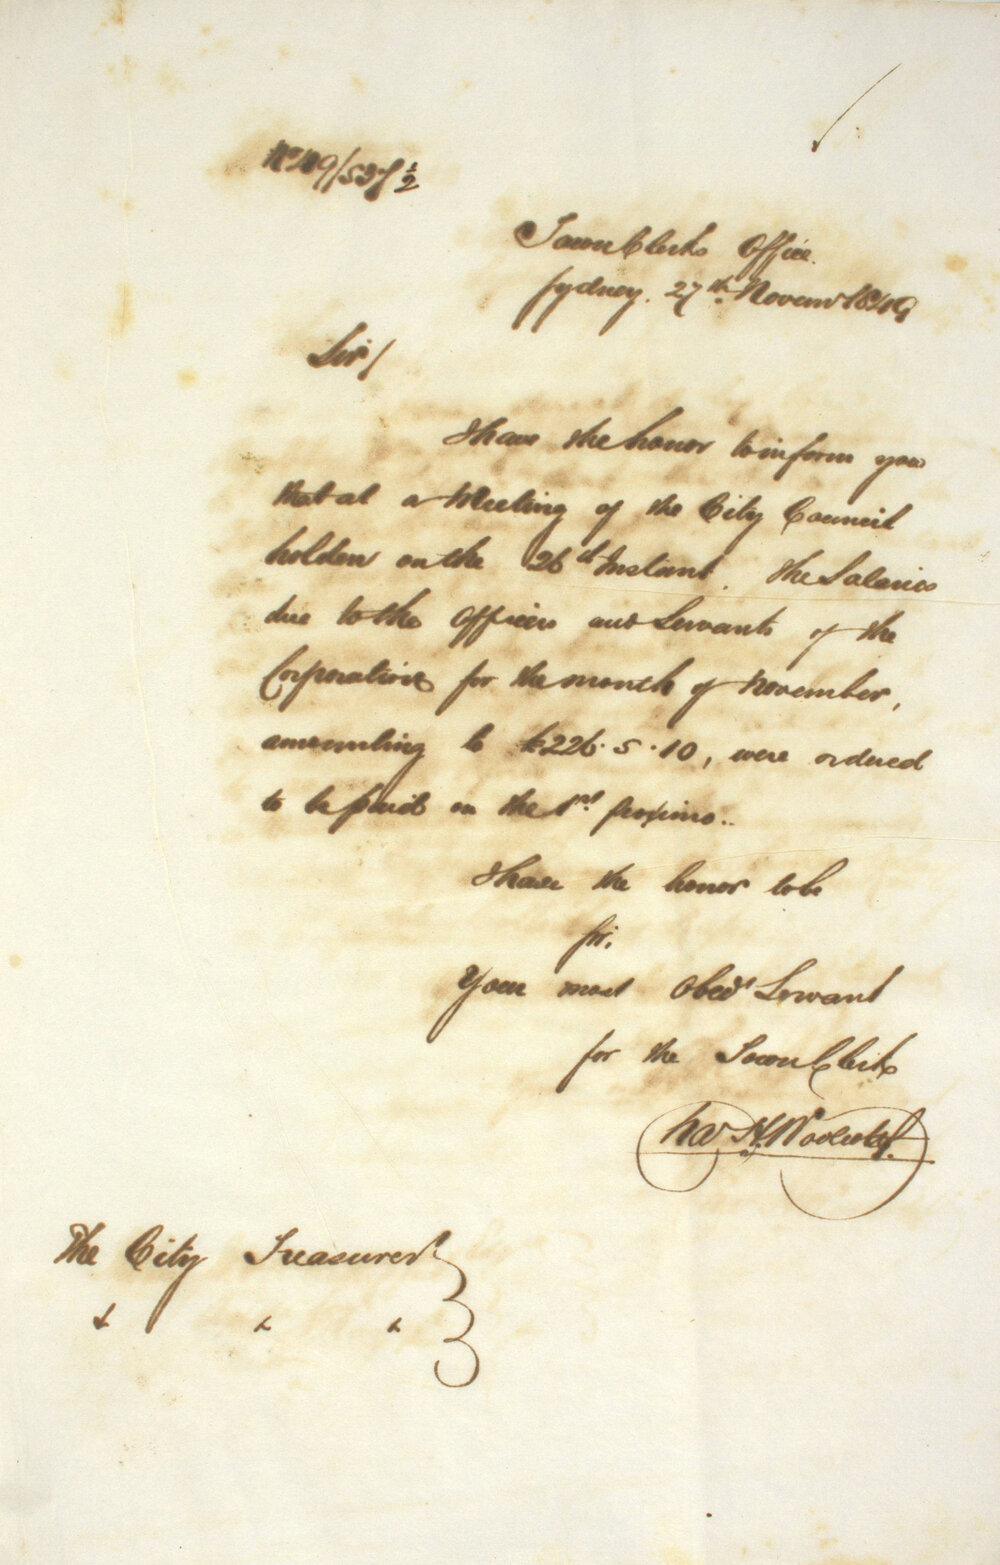 No 49/537 1/2
Town Clerks Office.
Sydney. 27th. Novemr 1849
Sir/
I have the honor to inform you
that at a Meeting of the City Council
holden on the 26th Instant. the Salaries
due to the Officers and Servants of the
Corporation for the month of November,
amounting to £226.5.10, were ordered
to be paid on the 1st. proximo..
I have the honor to be
Sir,
Your most Obedt Servant
for the Town Clerk
The City Treasurer
& & &